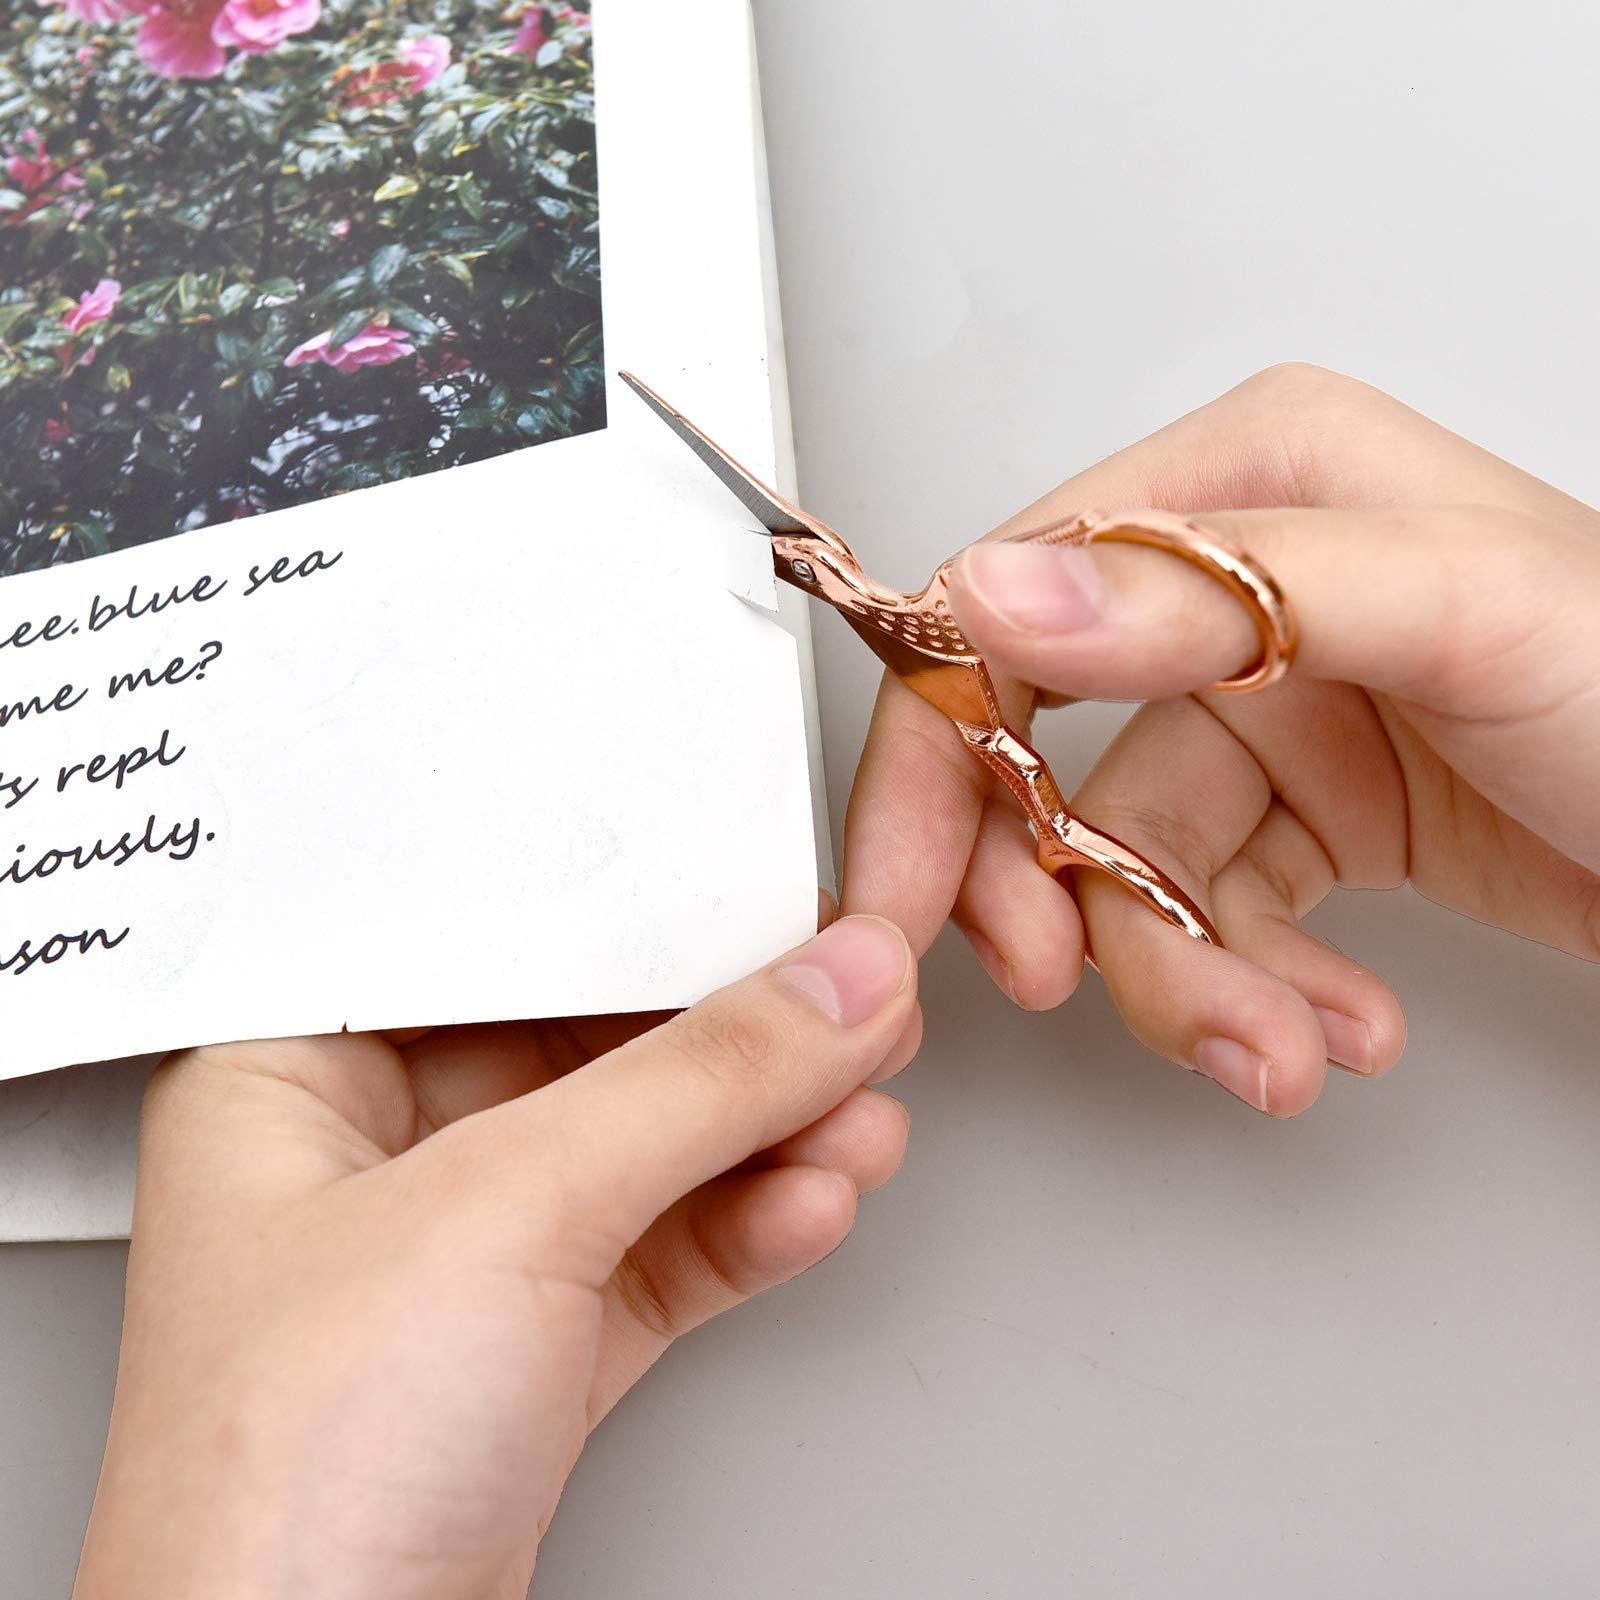 ee.blue sea
me me?
s repl
iously.
son